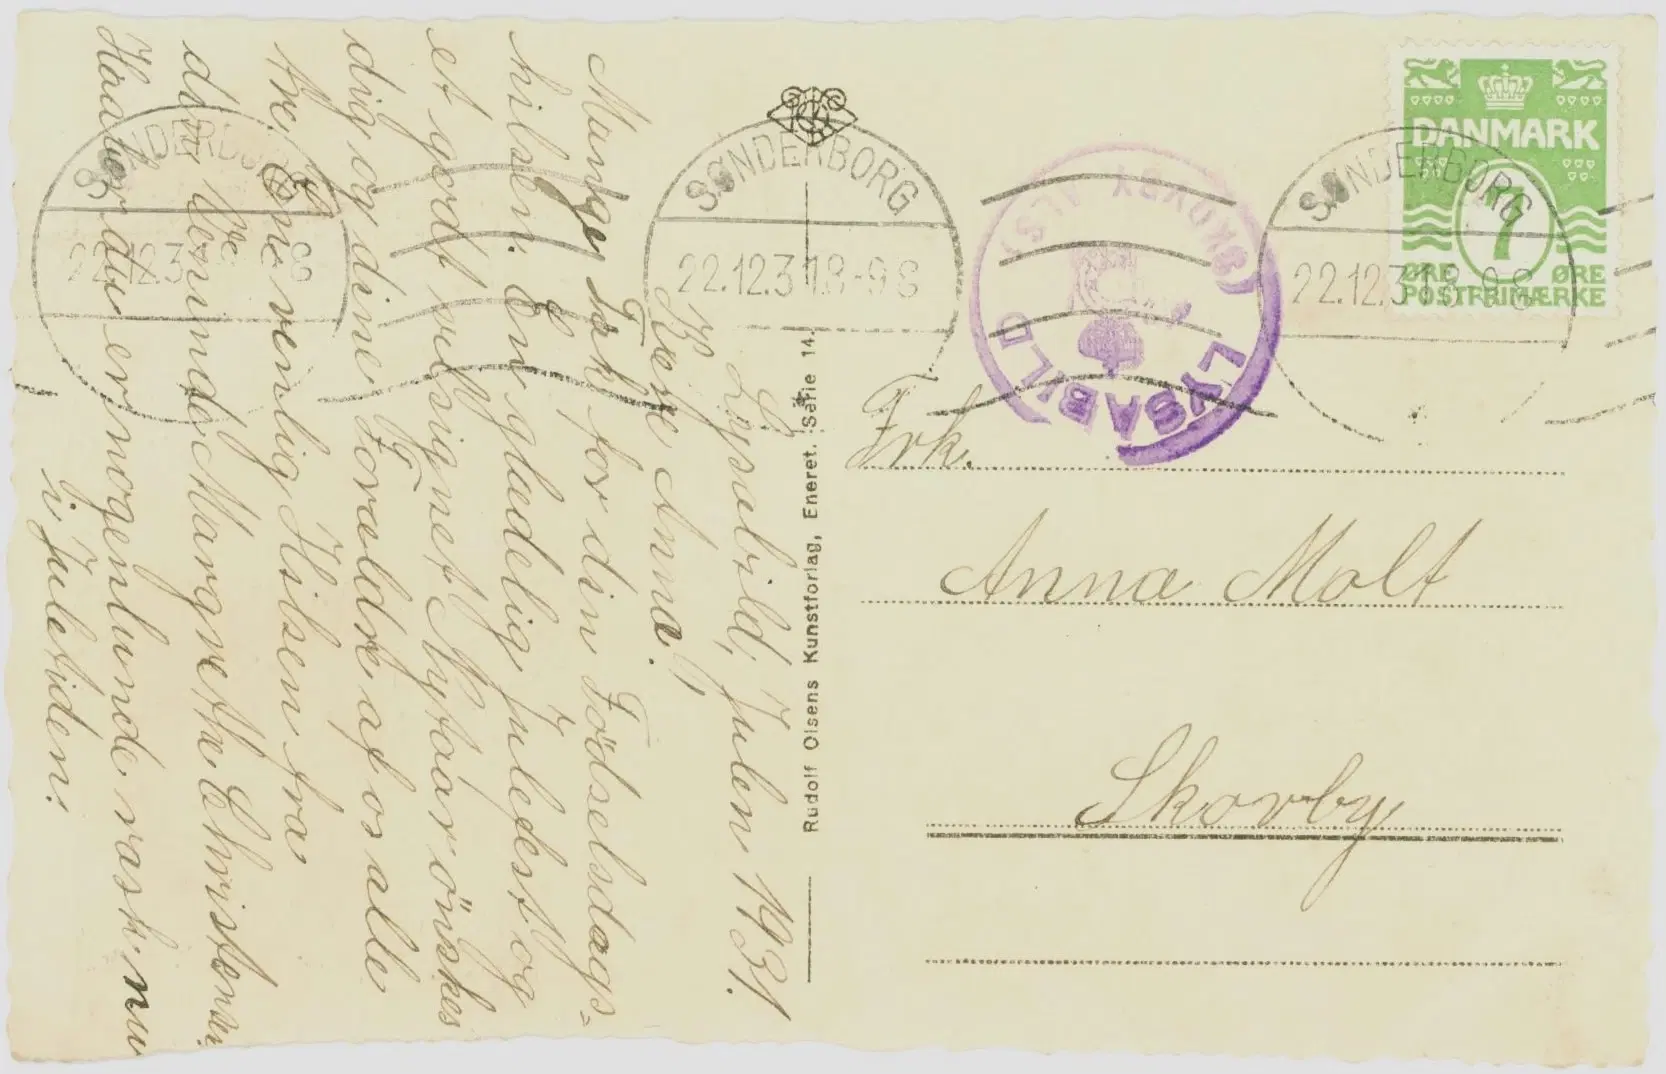 Lysabild, Julen 1931.
Kære Anna!
Mange Tak for din Födselsdags-
hilsen. En glædelig Julefest og
et godt velsignet Nytaar önskes
dig og dine Forældre af os alle
tre. Ene venlig Hilsen fra
din Veninde, Margrethe Christensen.
Haaber du er nogenlunde rask nu
i Juletiden.
Rudolf Olsens Kunstforlag, Eneret. Serie 14.
SØNDERBORG
22.12.31.8-9S
SØNDERBORG
22.12.31.8-9S
SØNDERBORG
22.12.31.8-9S
LYSABILD
(SKOVBY ALS)
DANMARK
7
ØRE ØRE
POSTFRIMÆRKE
Frk.
Anna Molt
Skovby